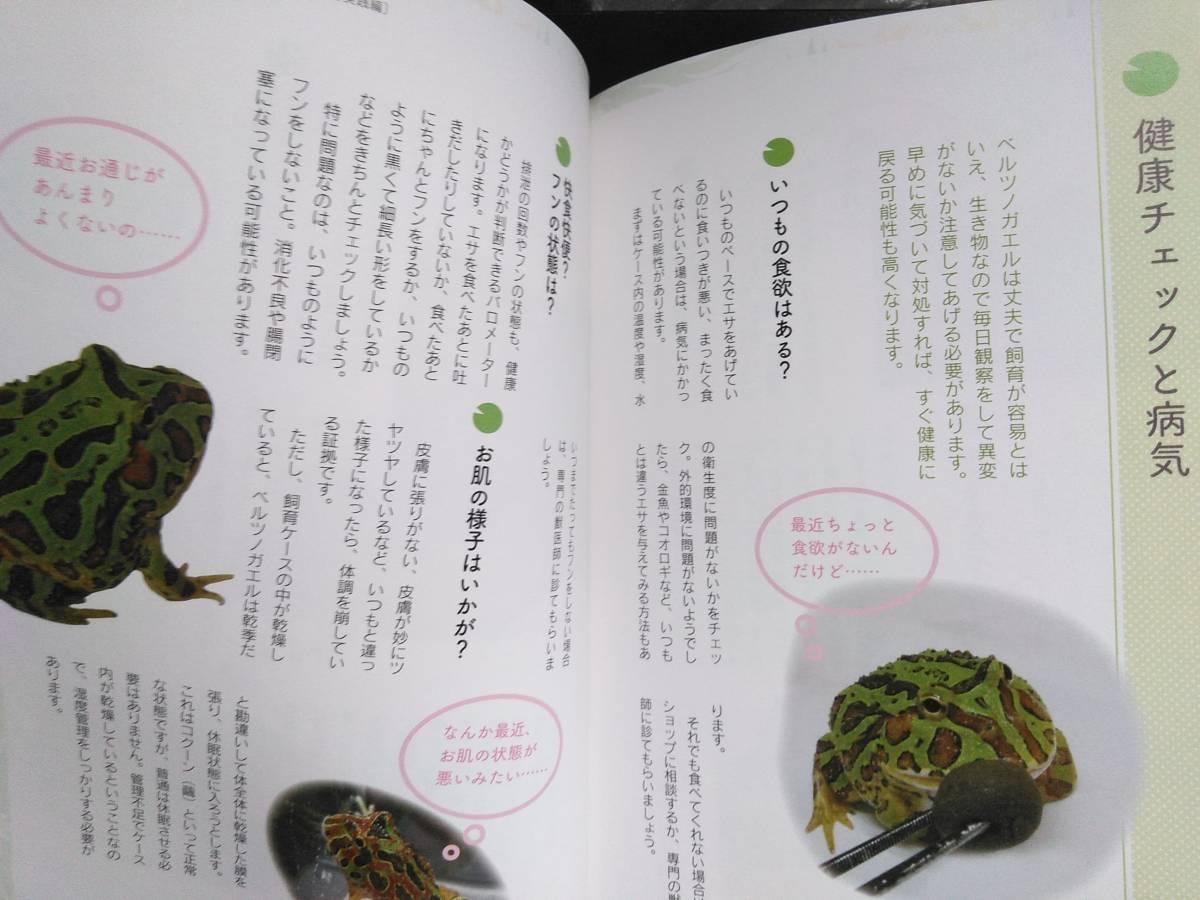 健康チェックと病気
ベルツノガエルは丈夫で飼育が容易とは
いえ、生き物なので毎日観察をして異変
がないか注意してあげる必要があります。
早めに気づいて対処すれば、すぐ健康に
戻る可能性も高くなります。
いつもの食欲はある？
いつものペースでエサをあげてい
るのに食いつきが悪い、まったく食
べないという場合は、病気にかかっ
ている可能性があります。
まずはケース内の温度や湿度、水
の衛生度に問題がないかをチェッ
ク。外的環境に問題がないようでし
たら、金魚やコオロギなど、いつも
とは違うエサを与えてみる方法もあ
ります。
それでも食べてくれない場合は
ショップに相談するか、専門の獣
師に診てもらいましょう。
最近ちょっと
食欲がないん
だけど……
実践編）
快食快便？
フンの状態は？
排泄の回数やフンの状態も、健康
かどうかが判断できるバロメーター
になります。エサを食べたあとに吐
きだしたりしていないか、食べたあと
にちゃんとフンをするか、いつもの
ように黒くて細長い形をしているか
などをきちんとチェックしましょう。
特に問題なのは、いつものように
フンをしないこと。消化不良や腸閉
塞になっている可能性があります。
いつまでたってもフンをしない場合
は、専門の獣医師に診てもらいま
しょう。
最近お通じが
あんまり
よくないの……
お肌の様子はいかが？
皮膚に張りがない、皮膚が妙にツ
ヤツヤしているなど、いつもと違っ
た様子になったら、体調を崩してい
る証拠です。
ただし、飼育ケースの中が乾燥し
ていると、ベルツノガエルは乾季だ
と勘違いして体全体に乾燥した膜を
張り、休眠状態に入ろうとします。
これはコクーン（繭）といって正常
な状態ですが、普通は休眠させる必
要はありません。管理不足でケース
内が乾燥しているということなの
で、湿度管理をしっかりする必要が
あります。
なんか最近、
お肌の状態が
悪いみたい……